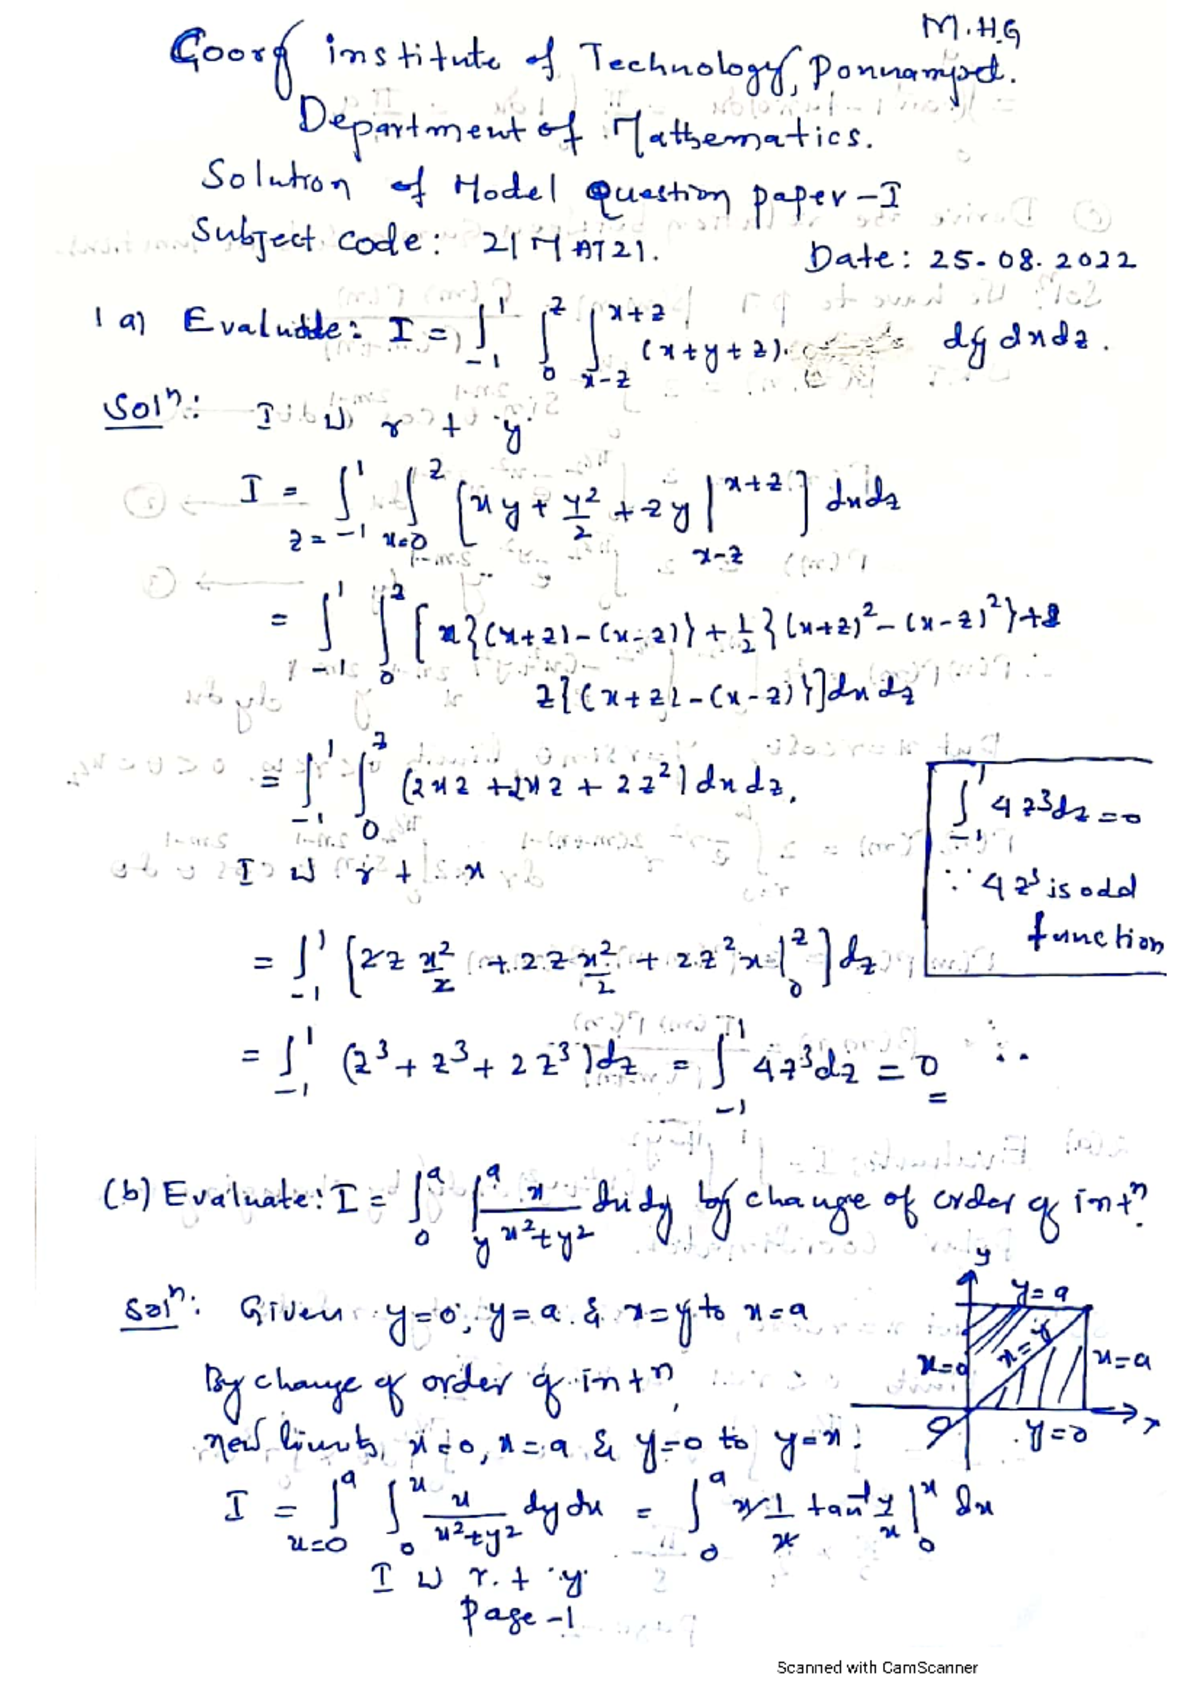 M.H.G
Coorg institute of Technology, Ponnampet.
Department of Mathematics.
Solution of Model Question paper-I
Subject code: 21MAT21. Date: 25-08-2022
1 a) Evaluate: I = ∫_{-1}^{1} ∫_0^z ∫_{x-z}^{x+z} (x+y+z). dy dx dz.
Solⁿ: I w r t y
I = ∫_{z=-1}^{1} ∫_{x=0}^{z} [xy + y²/2 + zy |_{x-z}^{x+z}] dx dz
= ∫_{-1}^{1} ∫_0^z [x{(x+z)-(x-z)} + 1/2 {(x+z)² - (x-z)²} +
z{(x+z)-(x-z)}] dx dz
= ∫_{-1}^{1} ∫_0^z (2xz + 2xz + 2z²) dx dz.
I w r t x
= ∫_{-1}^{1} [2z x²/2 + 2z x²/2 + 2z² x |_0^z] dz
= ∫_{-1}^{1} (z³ + z³ + 2z³) dz = ∫_{-1}^{1} 4z³ dz = 0
∫_{-1}^{1} 4z³dz = 0
∵ 4z³ is odd
function
(b) Evaluate: I = ∫_0^a ∫_y^a x/(x²+y²) dx dy by change of order of intⁿ.
Solⁿ: Given y=0, y=a & x=y to x=a
By change of order of intⁿ,
new limits, x=0, x=a & y=0 to y=x.
y
y=a
x=0
x=y
x=a
O
y=0
x
I = ∫_{x=0}^{a} ∫_0^x x/(x²+y²) dy dx = ∫_0^a x·1/x tan⁻¹ y/x |_0^x dx
I w r. t y
Page-1
Scanned with CamScanner